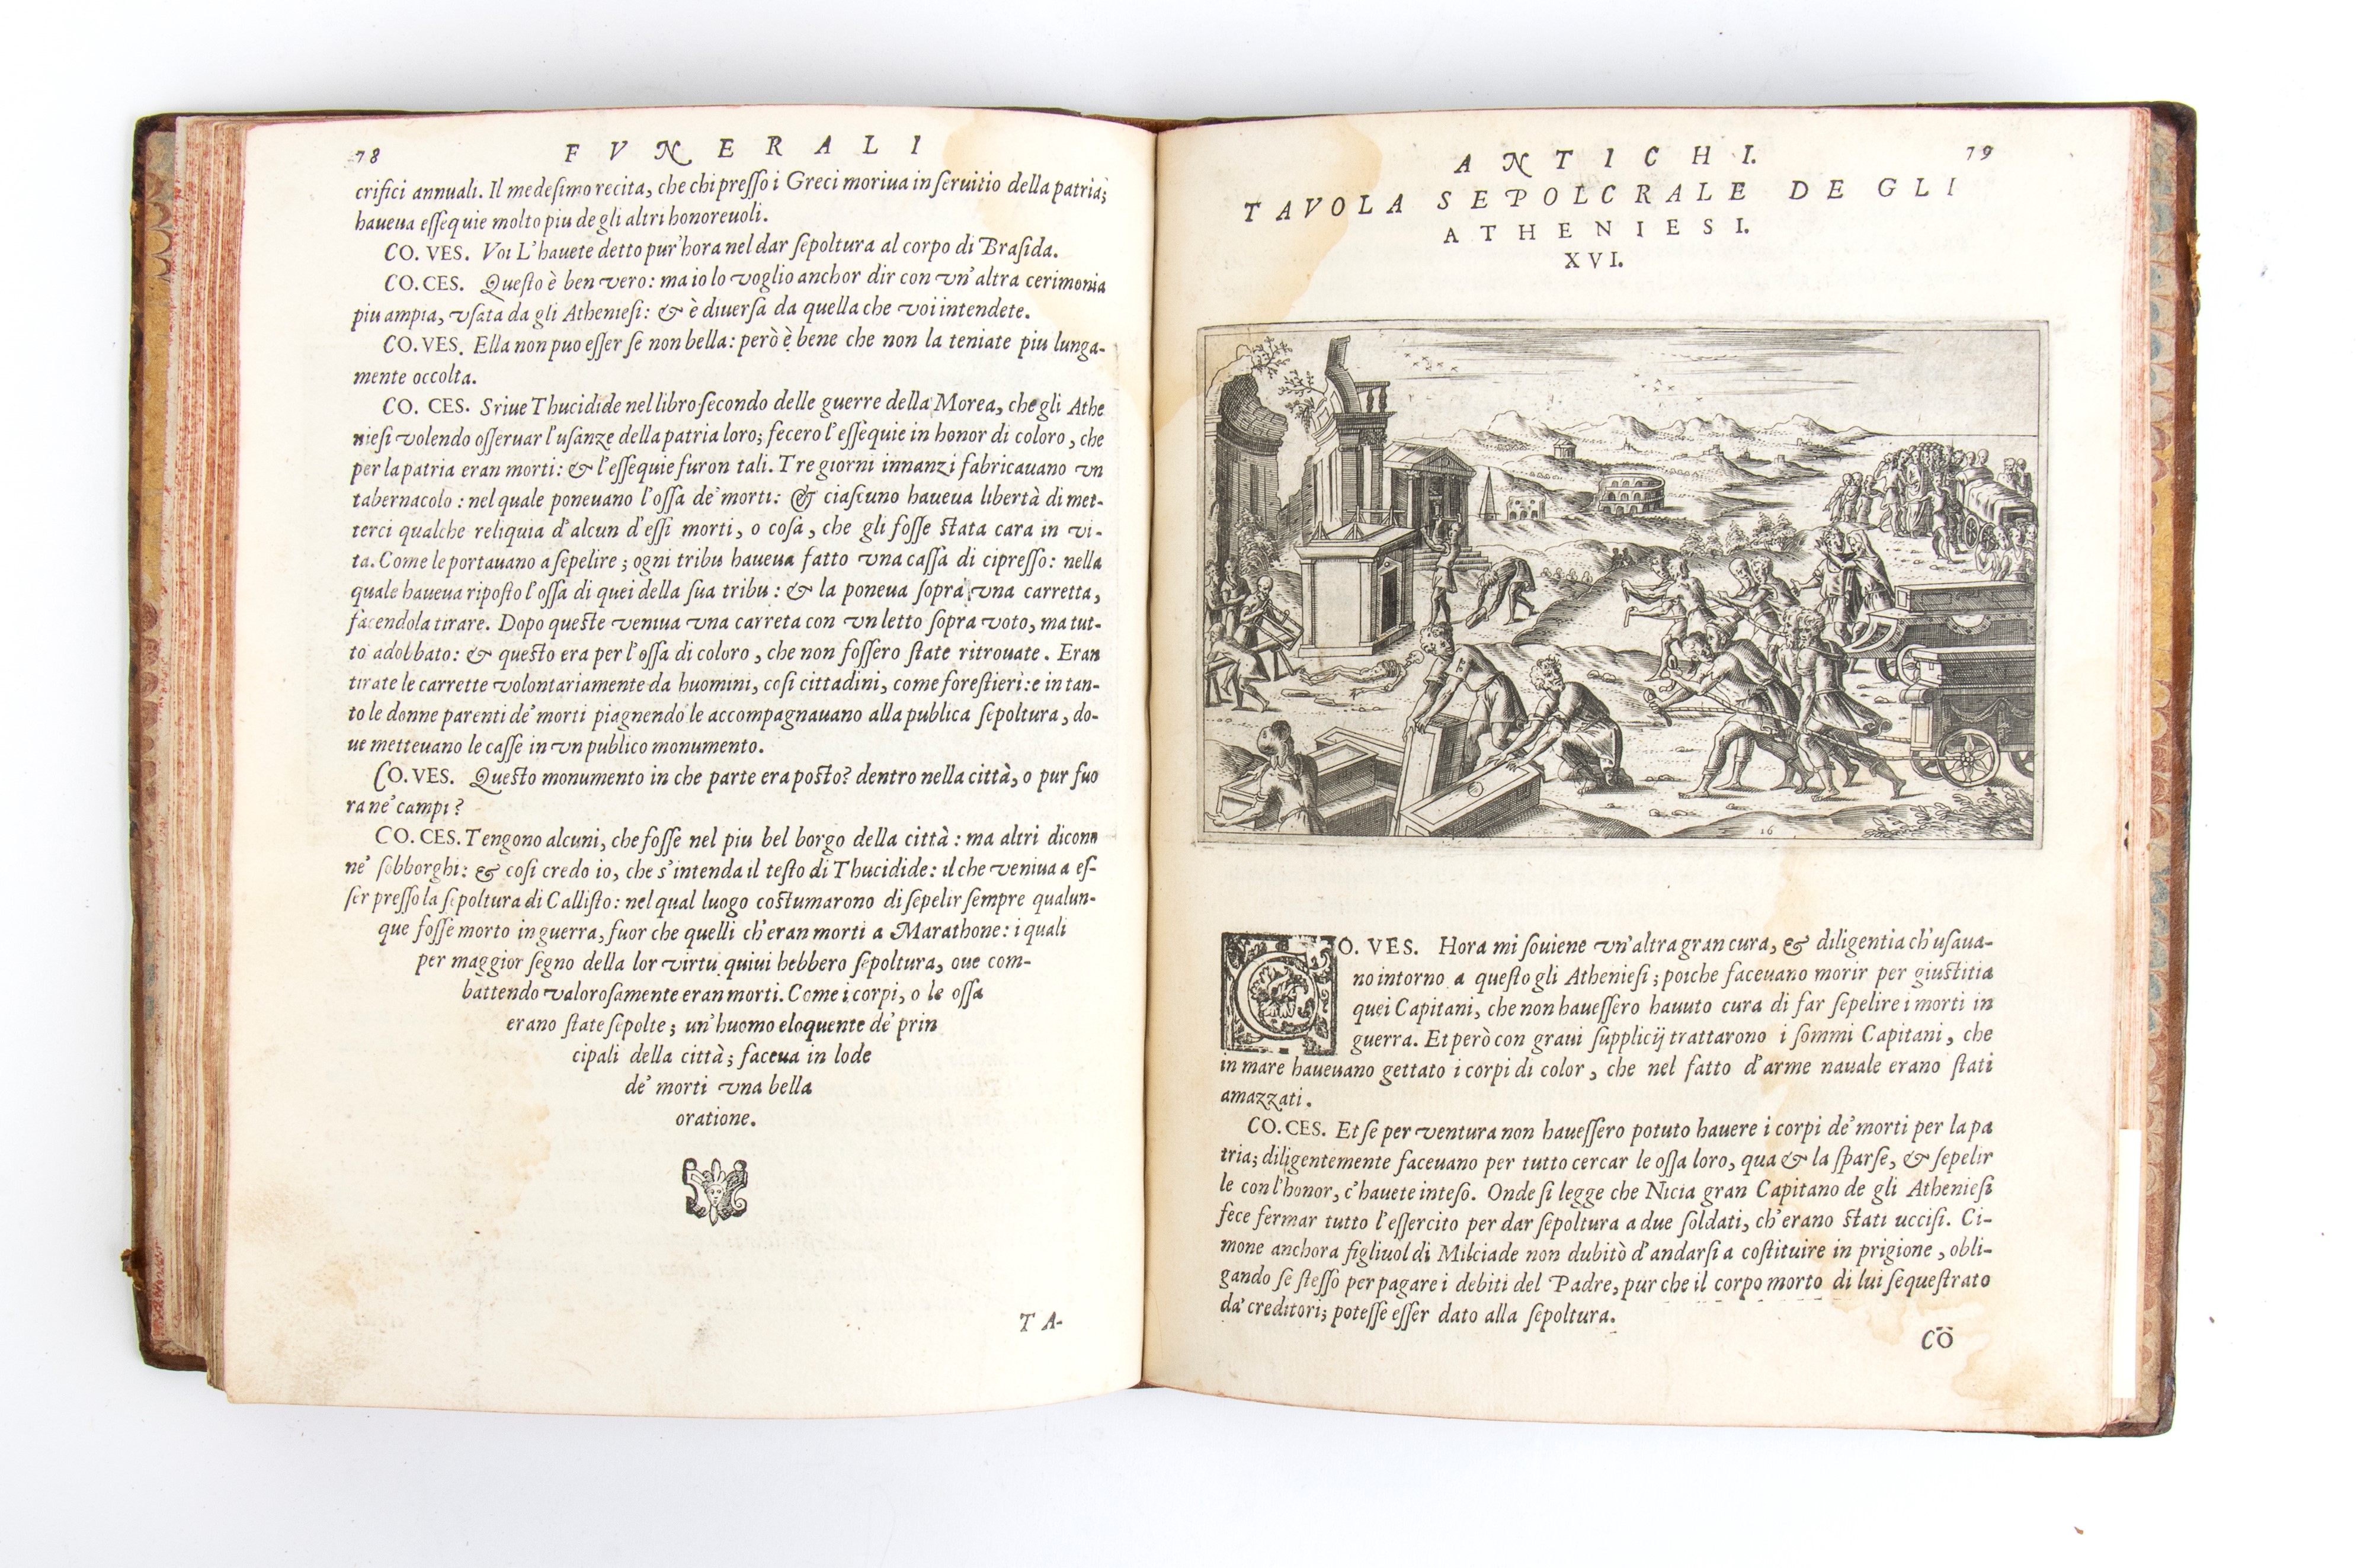 78
FVNERALI
crifici annuali. Il medesimo recita, che chi presso i Greci moriua in seruitio della patria;
haueua essequie molto piu de gli altri honoreuoli.
CO. VES. Voi L'hauete detto pur'hora nel dar sepoltura al corpo di Brasida.
CO. CES. Questo è ben vero: ma io lo voglio anchor dir con vn'altra cerimonia
piu ampia, vsata da gli Atheniesi: & è diuersa da quella che voi intendete.
CO. VES. Ella non puo esser se non bella: però è bene che non la teniate piu lunga-
mente occolta.
CO. CES. Sriue Thucidide nel libro secondo delle guerre della Morea, che gli Athe
niesi volendo osseruar l'usanze della patria loro; fecero l'essequie in honor di coloro, che
per la patria eran morti: & l'essequie furon tali. Tre giorni innanzi fabricauano vn
tabernacolo: nel quale poneuano l'ossa de' morti: & ciascuno haueua libertà di met-
terci qualche reliquia d'alcun d'essi morti, o cosa, che gli fosse stata cara in vi-
ta. Come le portauano a sepelire; ogni tribu haueua fatto vna cassa di cipresso: nella
quale haueua riposto l'ossa di quei della sua tribu: & la poneua sopra vna carretta,
facendola tirare. Dopo queste veniua vna carreta con vn letto sopra voto, ma tut-
to adobbato: & questo era per l'ossa di coloro, che non fossero state ritrouate. Eran
tirate le carrette volontariamente da huomini, cosi cittadini, come forestieri: e in tan-
to le donne parenti de' morti piagnendo le accompagnauano alla publica sepoltura, do-
ue metteuano le casse in vn publico monumento.
CO. VES. Questo monumento in che parte era posto? dentro nella città, o pur fuo
ra ne' campi?
CO. CES. Tengono alcuni, che fosse nel piu bel borgo della città: ma altri dicono
ne' sobborghi: & cosi credo io, che s'intenda il testo di Thucidide: il che veniua a es-
ser presso la sepoltura di Callisto: nel qual luogo costumarono di sepelir sempre qualun-
que fosse morto in guerra, fuor che quelli ch'eran morti a Marathone: i quali
per maggior segno della lor virtu quiui hebbero sepoltura, oue com-
battendo valorosamente eran morti. Come i corpi, o le ossa
erano state sepolte; un'huomo eloquente de' prin
cipali della città; faceua in lode
de' morti vna bella
oratione.
TA-
ANTICHI.
79
TAVOLA SEPOLCRALE DE GLI
ATHENIESI.
XVI.
16
CO. VES. Hora mi souiene vn'altra gran cura, & diligentia ch'usaua-
no intorno a questo gli Atheniesi; poiche faceuano morir per giustitia
quei Capitani, che non hauessero hauuto cura di far sepelire i morti in
guerra. Et però con graui supplicij trattarono i sommi Capitani, che
in mare haueuano gettato i corpi di color, che nel fatto d'arme nauale erano stati
amazzati.
CO. CES. Et se per ventura non hauessero potuto hauere i corpi de' morti per la pa
tria; diligentemente faceuano per tutto cercar le ossa loro, qua & la sparse, & sepelir
le con l'honor, c'hauete inteso. Onde si legge che Nicia gran Capitano de gli Atheniesi
fece fermar tutto l'essercito per dar sepoltura a due soldati, ch'erano stati uccisi. Ci-
mone anchora figliuol di Milciade non dubitò d'andarsi a costituire in prigione, obli-
gando se stesso per pagare i debiti del Padre, pur che il corpo morto di lui sequestrato
da' creditori; potesse esser dato alla sepoltura.
CÕ